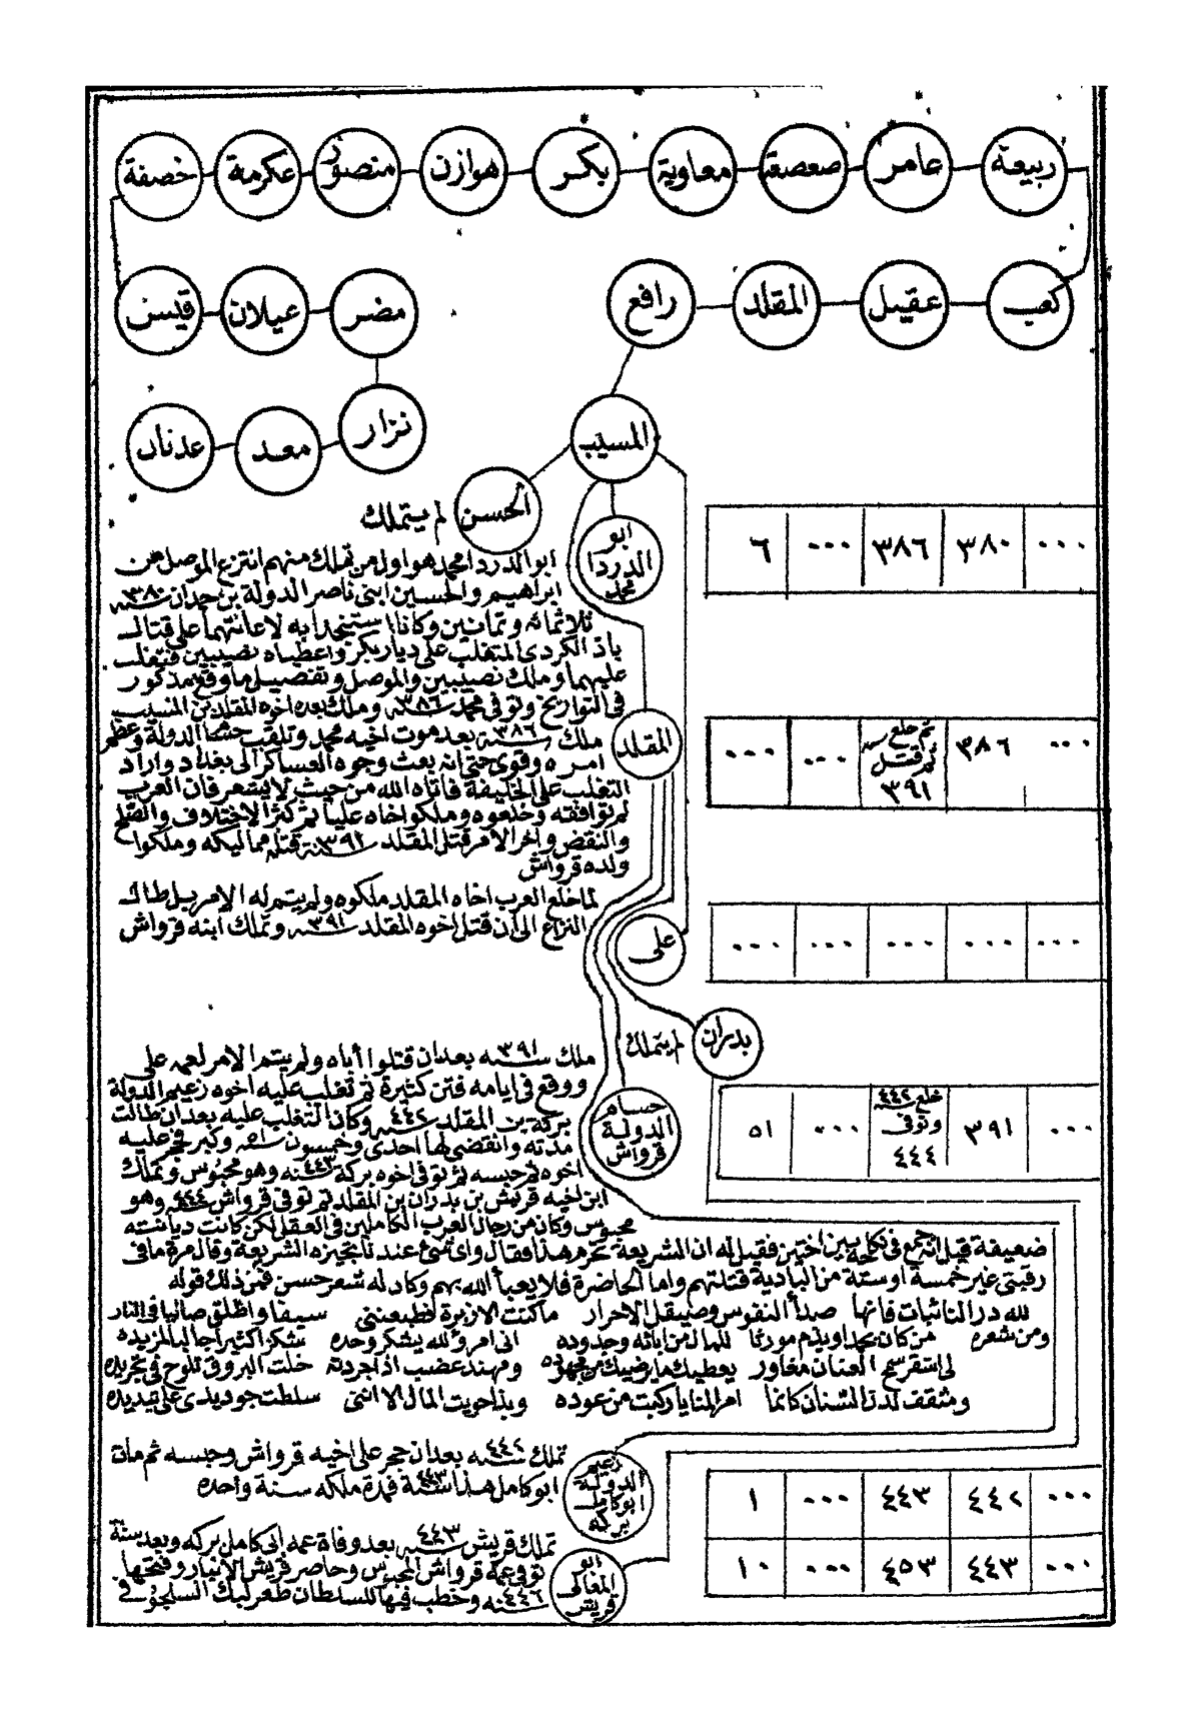 ربيعة عامر صعصعة معاوية بكر هوازن منصور عكرمة خصفة
كعب عقيل المقلد رافع مضر عيلان قيس
المسيب نزار معد عدنان
الحسن لم يتملك
ابو الدردا محمد
... ٣٨٠ ٣٨٦ ... ٦
ابو الدردا محمد هو اول من تملك منهم انتزع الموصل من
ابراهيم والحسين ابنى ناصر الدولة بن حمدان سنة ٣٨٠
ثلاثمائة وثمانين وكانا استنجدا به لاعانتهما على قتال
باذ الكردى المتغلب على ديار بكر واعطياه نصيبين فتغلب
عليهما وملك نصيبين والموصل وتفصيل ما وقع مذكور
فى التواريخ وتوفى محمد سنة ٣٨٦ وملك بعده اخوه المقلد بن المسيب
المقلد
... ٣٨٦ تم خلع سنه ثم قتل ٣٩١ ... ...
ملك سنة ٣٨٦ بعد موت اخيه محمد وتلقب حسام الدولة وعظم
امره وقوى حتى انه بعث وجوه العساكر الى بغداد واراد
التغلب على الخليفة فاتاه الله من حيث لا يشعر فان العرب
لم توافقه وخلعوه وملكوا اخاه عليا ثم كثر الاختلاف والصلح
والنقض واخر الامر قتل المقلد سنة ٣٩١ قتله مماليكه وملكوا
ولده قرواش
على
... ... ... ... ...
لما خلع العرب اخاه المقلد ملكوه ولم يتم له الامر بل طال
النزاع الى ان قتل اخوه المقلد سنة ٣٩١ وتملك ابنه قرواش
بدران لم يتملك
حسام الدولة قرواش
... ٣٩١ خلع سنة ٤٤٢ وتوفى ٤٤٤ ... ٥١
ملك سنة ٣٩١ بعد ان قتلوا أباه ولم يتم الامر لعمه على
ووقع فى ايامه فتن كثيرة ثم تغلب عليه اخوه زعيم الدولة
بركة بن المقلد سنة ٤٤٢ وكان التغلب عليه بعد ان طالت
مدته وانقضى لها احدى وخمسون سنة وكبر فحجر عليه
اخوه ثم حبسه ثم توفى اخوه بركة سنة ٤٤٣ وهو محبوس وتملك
ابن اخيه قريش بن بدران بن المقلد ثم توفى قرواش سنة ٤٤٤ وهو
محبوس وكان من رجال العرب الكاملين فى العقل لكن كانت ديانته
ضعيفة قيل انه جمع فى نكاحه بين اختين فقيل له ان الشريعة تحرم هذا فقال واى شئ عندنا تجيزه الشريعة وقال مرة ما فى
رقبتى غير خمسة او ستة من البادية قتلتهم واما الحاضرة فلا يعبأ الله بهم وكان له شعر حسن فمن ذلك قوله
لله در النائبات فانها صدأ النفوس وصيقل الاحرار ما كنت الا زبرة فطبعننى سيفا واطلق صانيا فى النار
ومن شعره من كان يحمد او يذم مورثا للمال من ابائه وجدوده انى امرؤ لله يشكر وحده شكرا كثيرا جالبا لمزيده
لى اشقر سمح العنان مغاور يعطيك ما يرضيك من مجهوده ومهند عضب اذا جردته خلت البروق تلوح فى تجريده
ومثقف لدن السنان كانما ام المنايا ركبت من عوده وبذا حويت المال الا اننى سلطت جود يدى على تبديده
زعيم الدولة ابو كامل بركه
... ٤٤٢ ٤٤٣ ... ١
تملك سنة ٤٤٢ بعد ان حجر على اخيه قرواش وحبسه ثم مات
ابو كامل هذا سنة ٤٤٣ فمدة ملكه سنة واحده
ابو المعالى قريش
... ٤٤٣ ٤٥٣ ... ١٠
تملك قريش سنة ٤٤٣ بعد وفاة عمه ابى كامل بركه وبعد سنة
توفى عمه قرواش المحبوس وحاصر قريش الانبار وفتحها
سنة ٤٤٦ وخطب فيها للسلطان طغرلبك السلجوقى فى